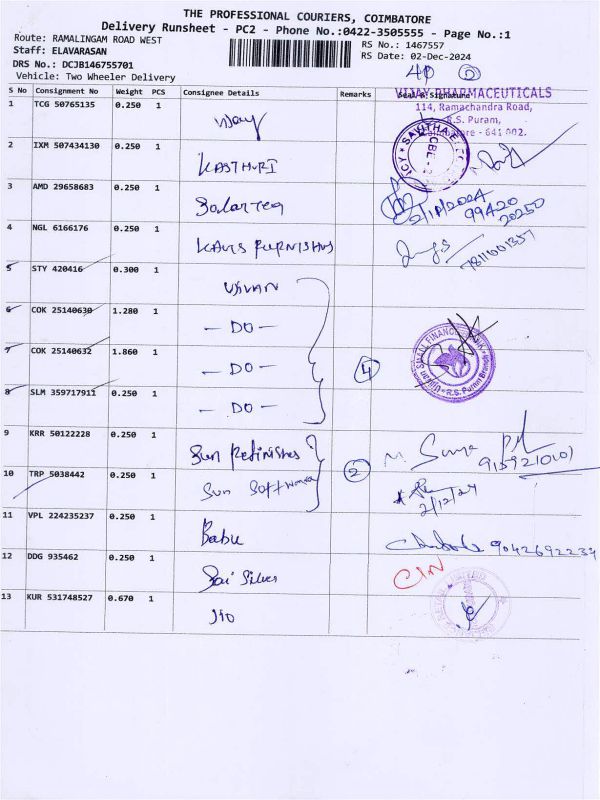 THE PROFESSIONAL COURIERS, COIMBATORE
Delivery Runsheet - PC2 - Phone No.:0422-3505555 - Page No.:1
Route: RAMALINGAM ROAD WEST
RS No.: 1467557
Staff: ELAVARASAN
RS Date: 02-Dec-2024
DRS No.: DCJB146755701
Vehicle: Two Wheeler Delivery
S No Consignment No Weight PCS Consignee Details Remarks Seal & Signature
VIJAY PHARMACEUTICALS
114, Ramachandra Road,
R.S. Puram,
Coimbatore - 641 002.
1 TCG 50765135 0.250 1 Vijay
2 IXM 507434130 0.250 1 KASTHURI
3 AMD 29658683 0.250 1
99420
20250
4 NGL 6166176 0.250 1
7811001357
5 STY 420416 0.300 1 UJIVAN
6 COK 25140630 1.280 1 - DO -
7 COK 25140632 1.860 1 - DO - 4
SMALL FINANCE BANK
R.S. Puram Branch
8 SLM 359717911 0.250 1 - DO -
9 KRR 50122228 0.250 1 Sun Refinishes
10 TRP 5038442 0.250 1 Sun Software 2
2/12/24
11 VPL 224235237 0.250 1 Babu
9042692234
12 DDG 935462 0.250 1 Sai Silver
13 KUR 531748527 0.670 1 JIO